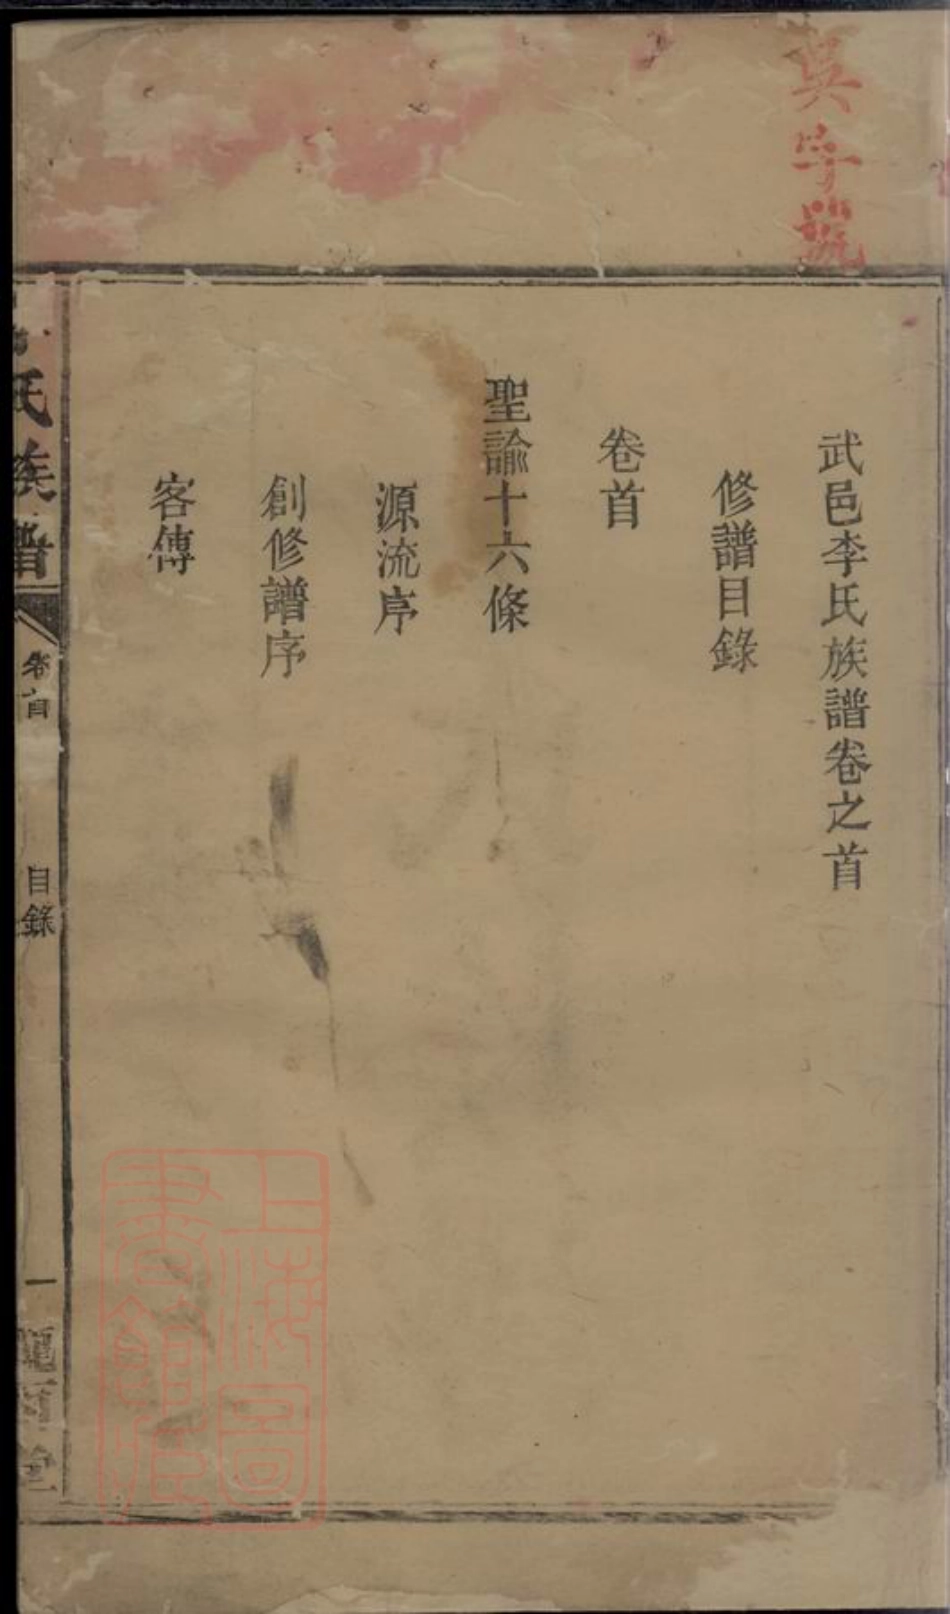 吳字號
武邑李氏族譜卷之首
修譜目錄
卷首
聖諭十六條
源流序
創修譜序
客傳
氏族譜
卷首
目錄
一
堂
上海圖
書館藏